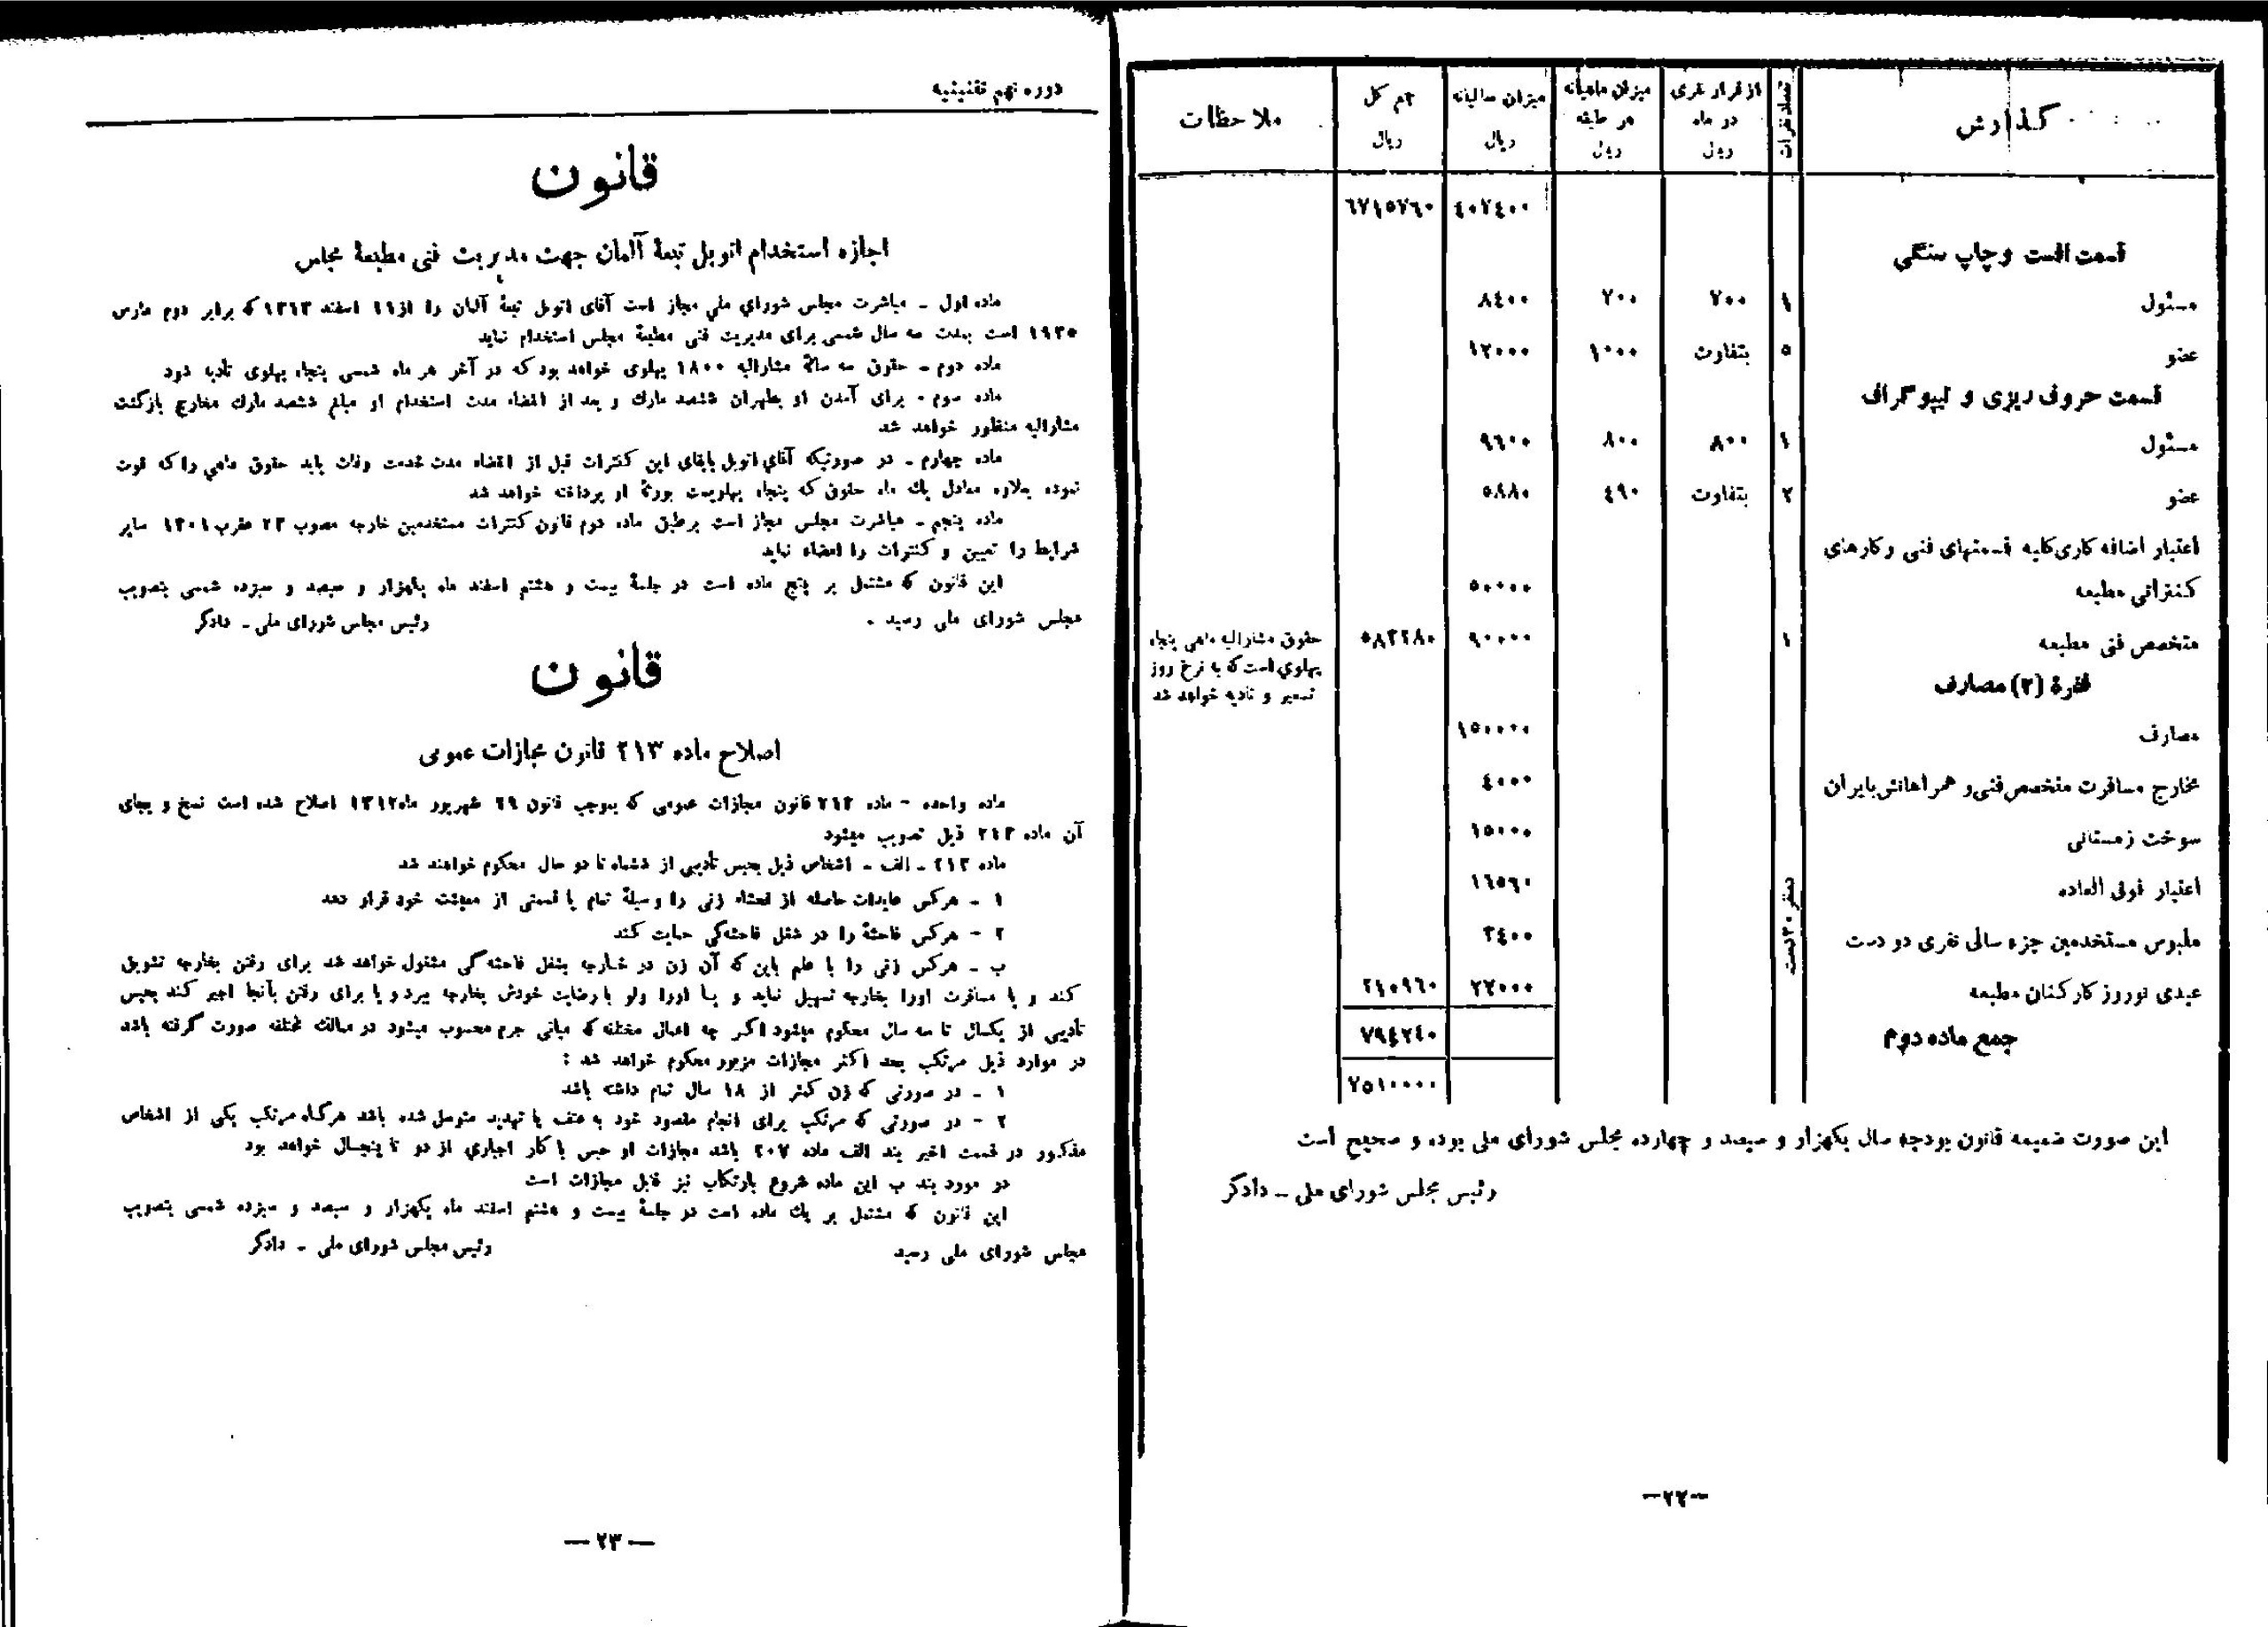 گذارش | تعداد نفرات | از قرار نفری در ماه ریال | میزان ماهیانه هر طبقه ریال | میزان سالیانه ریال | جمع کل ریال | ملاحظات
٤٠٧٤٠٠ ٦٧١٥٧٦٠
قسمت افست و چاپ سنگی
مسئول ١ ٧٠٠ ٧٠٠ ٨٤٠٠
عضو ٥ بتفاوت ١٠٠٠ ١٢٠٠٠
قسمت حروف ریزی و تیپوگرافی
مسئول ١ ٨٠٠ ٨٠٠ ٩٦٠٠
عضو ٢ بتفاوت ٤٩٠ ٥٨٨٠
اعتبار اضافه کاری کلیه قسمتهای فنی و کارهای
کنتراتی مطبعه ٥٠٠٠٠
متخصص فنی مطبعه ١ ٩٠٠٠٠ ٥٨٣٢٨٠ حقوق مشارالیه ماهی پنجاه
پهلوی است که به نرخ روز
تسعیر و تادیه خواهد شد
فقرة (٢) مصارف
مصارف ١٥٠٠٠٠
مخارج مسافرت متخصص فنی و همراهانش بایران ٤٠٠٠
سوخت زمستانی ١٥٠٠٠
اعتبار فوق العاده ١٦٥٦٠
ملبوس مستخدمین جزء سالی نفری دو دست ٣٤٠٠
عیدی نوروز کارکنان مطبعه ٢٢٠٠٠ ٢١٠٩٦٠
جمع ماده دوم ٧٩٤٢٤٠
٧٥١٠٠٠٠
این صورت ضمیمه قانون بودجه سال یکهزار و سیصد و چهارده مجلس شورای ملی بوده و صحیح است
رئیس مجلس شورای ملی ـ دادگر
—٢٢—
دوره نهم تقنینیه
قانون
اجازه استخدام اتوبل تبعهٔ آلمان جهت مدیریت فنی مطبعهٔ مجلس
ماده اول ـ مباشرت مجلس شورای ملی مجاز است آقای اتوبل تبعهٔ آلمان را از ١١ اسفند ١٣١٣ که برابر دوم مارس
١٩٣٥ است بمدت سه سال شمسی برای مدیریت فنی مطبعهٔ مجلس استخدام نماید
ماده دوم ـ حقوق سه سالهٔ مشارالیه ١٨٠٠ پهلوی خواهد بود که در آخر هر ماه شمسی پنجاه پهلوی تأدیه شود
ماده سوم ـ برای آمدن او بطهران ششصد مارك و بعد از انقضاء مدت استخدام او مبلغ ششصد مارك مخارج بازگشت
مشارالیه منظور خواهد شد
ماده چهارم ـ در صورتیکه آقای اتوبل باقفای این کنترات قبل از انقضاء مدت خدمت وفات یابد حقوق ماهی را که فوت
نموده بعلاوه معادل یك ماه حقوق که پنجاه پهلویست بورثهٔ او پرداخته خواهد شد
ماده پنجم ـ مباشرت مجلس مجاز است برطبق ماده دوم قانون کنترات مستخدمین خارجه مصوب ٢٣ عقرب ١٣٠١ سایر
شرایط را تعیین و کنترات را امضاء نماید
این قانون که مشتمل بر پنج ماده است در جلسهٔ بیست و هشتم اسفند ماه یکهزار و سیصد و سیزده شمسی بتصویب
مجلس شورای ملی رسید . رئیس مجلس شورای ملی ـ دادگر
قانون
اصلاح ماده ٢١٣ قانون مجازات عمومی
ماده واحده - ماده ٢١٣ قانون مجازات عمومی که بموجب قانون ٢٩ شهریور ماه ١٣١٢ اصلاح شده است نسخ و بجای
آن ماده ٢١٣ ذیل تصویب میشود
ماده ٢١٣ ـ الف ـ اشخاص ذیل بحبس تأدیبی از ششماه تا دو سال محکوم خواهند شد
١ - هرکس عایدات حاصله از فحشاء زنی را وسیلهٔ تمام یا قسمتی از معیشت خود قرار دهد
٢ - هرکس فاحشهٔ را در شغل فاحشه‌گی حمایت کند
ب ـ هرکس زنی را با علم باین که آن زن در خارجه بشغل فاحشه گی مشغول خواهد شد برای رفتن بخارجه تشویق
کند و یا مسافرت اورا بخارجه تسهیل نماید و یا اورا ولو با رضایت خودش بخارجه ببرد و یا برای رفتن بآنجا اجیر کند بحبس
تأدیبی از یکسال تا سه سال محکوم میشود اگر چه اعمال مختلفه که مبانی جرم محسوب میشود در ممالك مختلفه صورت گرفته باشد
در موارد ذیل مرتکب بحد اکثر مجازات مزبور محکوم خواهد شد :
١ ـ در صورتی که زن کمتر از ١٨ سال تمام داشته باشد
٢ - در صورتی که مرتکب برای انجام مقصود خود به عنف یا تهدید متوسل شده باشد هرگاه مرتکب یکی از اشخاص
مذکور در قسمت اخیر بند الف ماده ٢٠٧ باشد مجازات او حبس با کار اجباری از دو تا پنجسال خواهد بود
در مورد بند ب این ماده شروع بارتکاب نیز قابل مجازات است
این قانون که مشتمل بر یك ماده است در جلسهٔ بیست و هشتم اسفند ماه یکهزار و سیصد و سیزده شمسی بتصویب
مجلس شورای ملی رسید رئیس مجلس شورای ملی ـ دادگر
— ٢٣ —